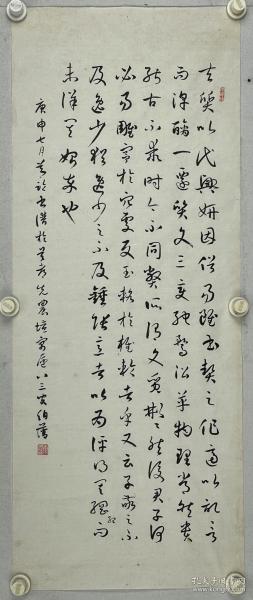 夫質以代興妍因俗易雖書契之作適以記言
而淳醨一遷質文三變馳騖沿革物理常然貴
能古不乖時今不同弊所謂文質彬彬然後君子何
必易雕宮於穴處反玉輅於椎輪者乎又云子敬之不
及逸少猶逸少之不及鍾張意者以為評得其綱紀而
未詳其始卒也
庚申七月 於 先農壇寓廬八三叟伯